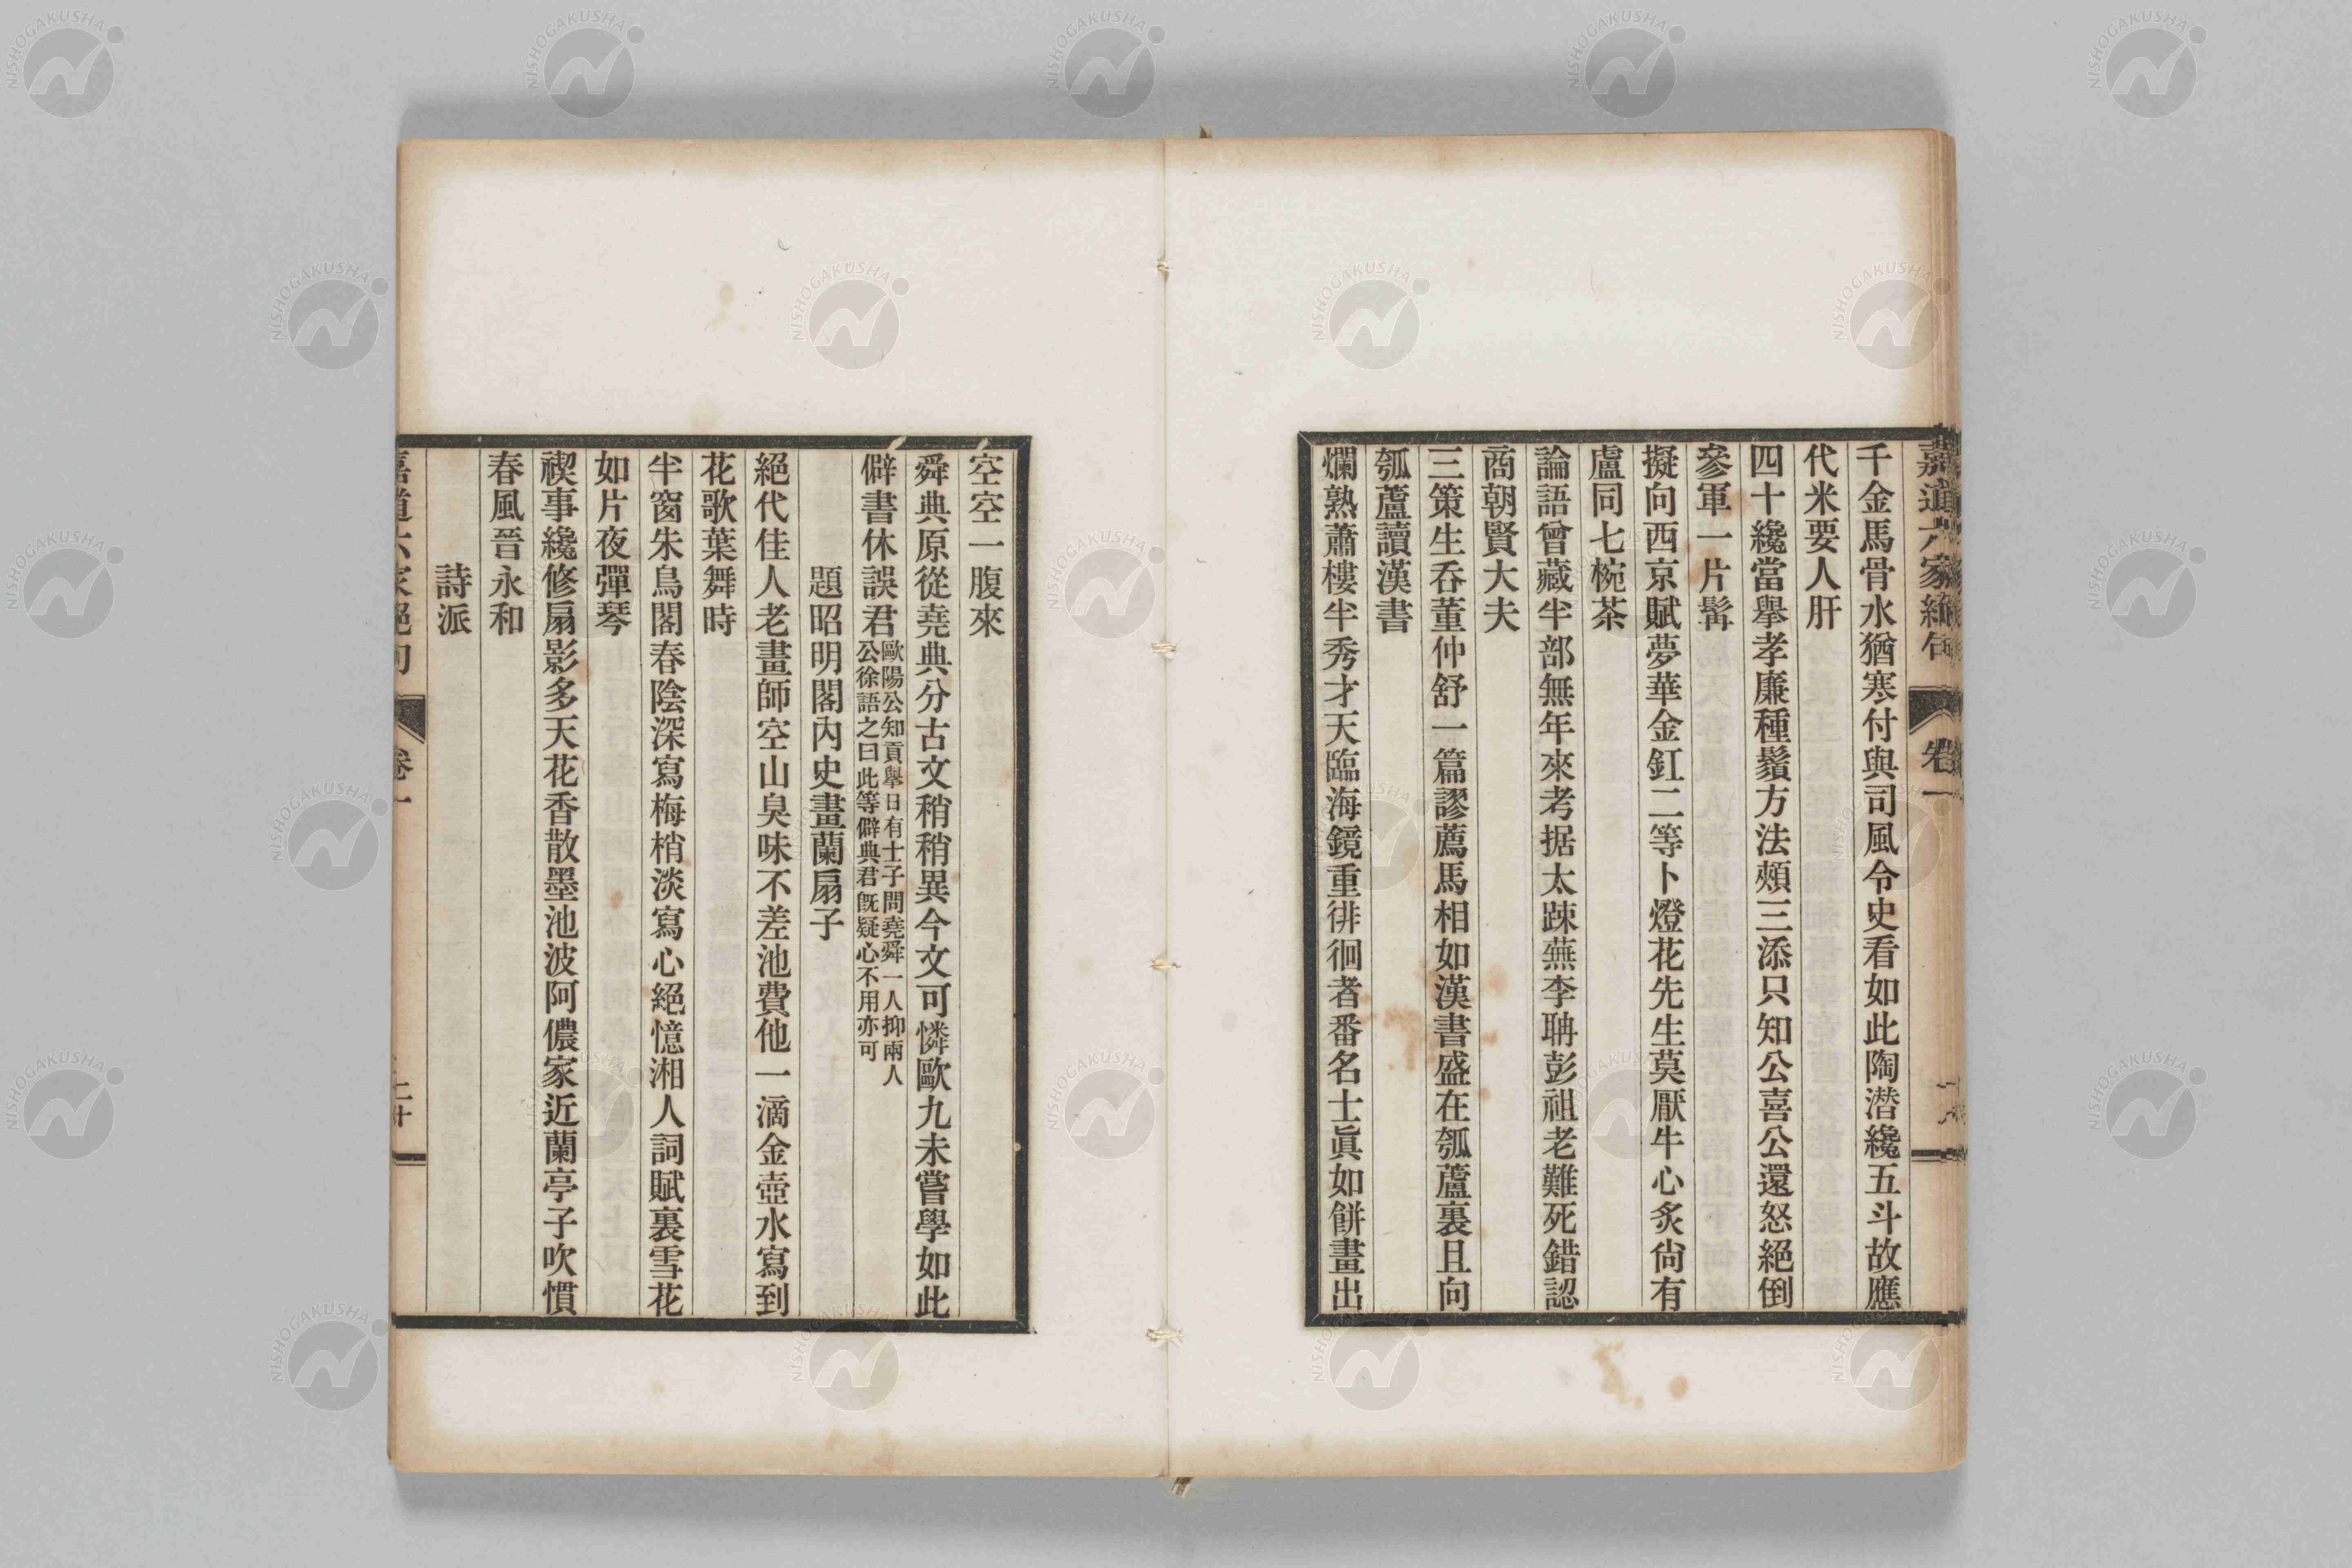 嘉道六家絕句
卷一
千金馬骨水猶寒付與司風令史看如此陶潛纔五斗故應
代米要人肝
四十纔當舉孝廉種鬚方法頰三添只知公喜公還怒絕倒
參軍一片髯
擬向西京賦夢華金釭二等卜燈花先生莫厭牛心炙尙有
盧同七椀茶
論語曾藏半部無年來考据太踈蕪李聃彭祖老難死錯認
商朝賢大夫
三策生呑董仲舒一篇謬薦馬相如漢書盛在瓠蘆裏且向
瓠蘆讀漢書
爛熟蕭樓半秀才天臨海鏡重徘徊者番名士眞如餅畫出
空空一腹來
舜典原從堯典分古文稍稍異今文可憐歐九未嘗學如此
僻書休誤君歐陽公知貢舉日有士子問堯舜一人抑兩人
公徐語之曰此等僻典君旣疑心不用亦可
題昭明閣內史畫蘭扇子
絕代佳人老畫師空山臭味不差池費他一滴金壺水寫到
花歌葉舞時
半窗朱鳥閣春陰深寫梅梢淡寫心絕憶湘人詞賦裏雪花
如片夜彈琴
禊事纔修扇影多天花香散墨池波阿儂家近蘭亭子吹慣
春風晉永和
詩派
嘉道六家絕句
卷一
二十
NISHOGAKUSHA